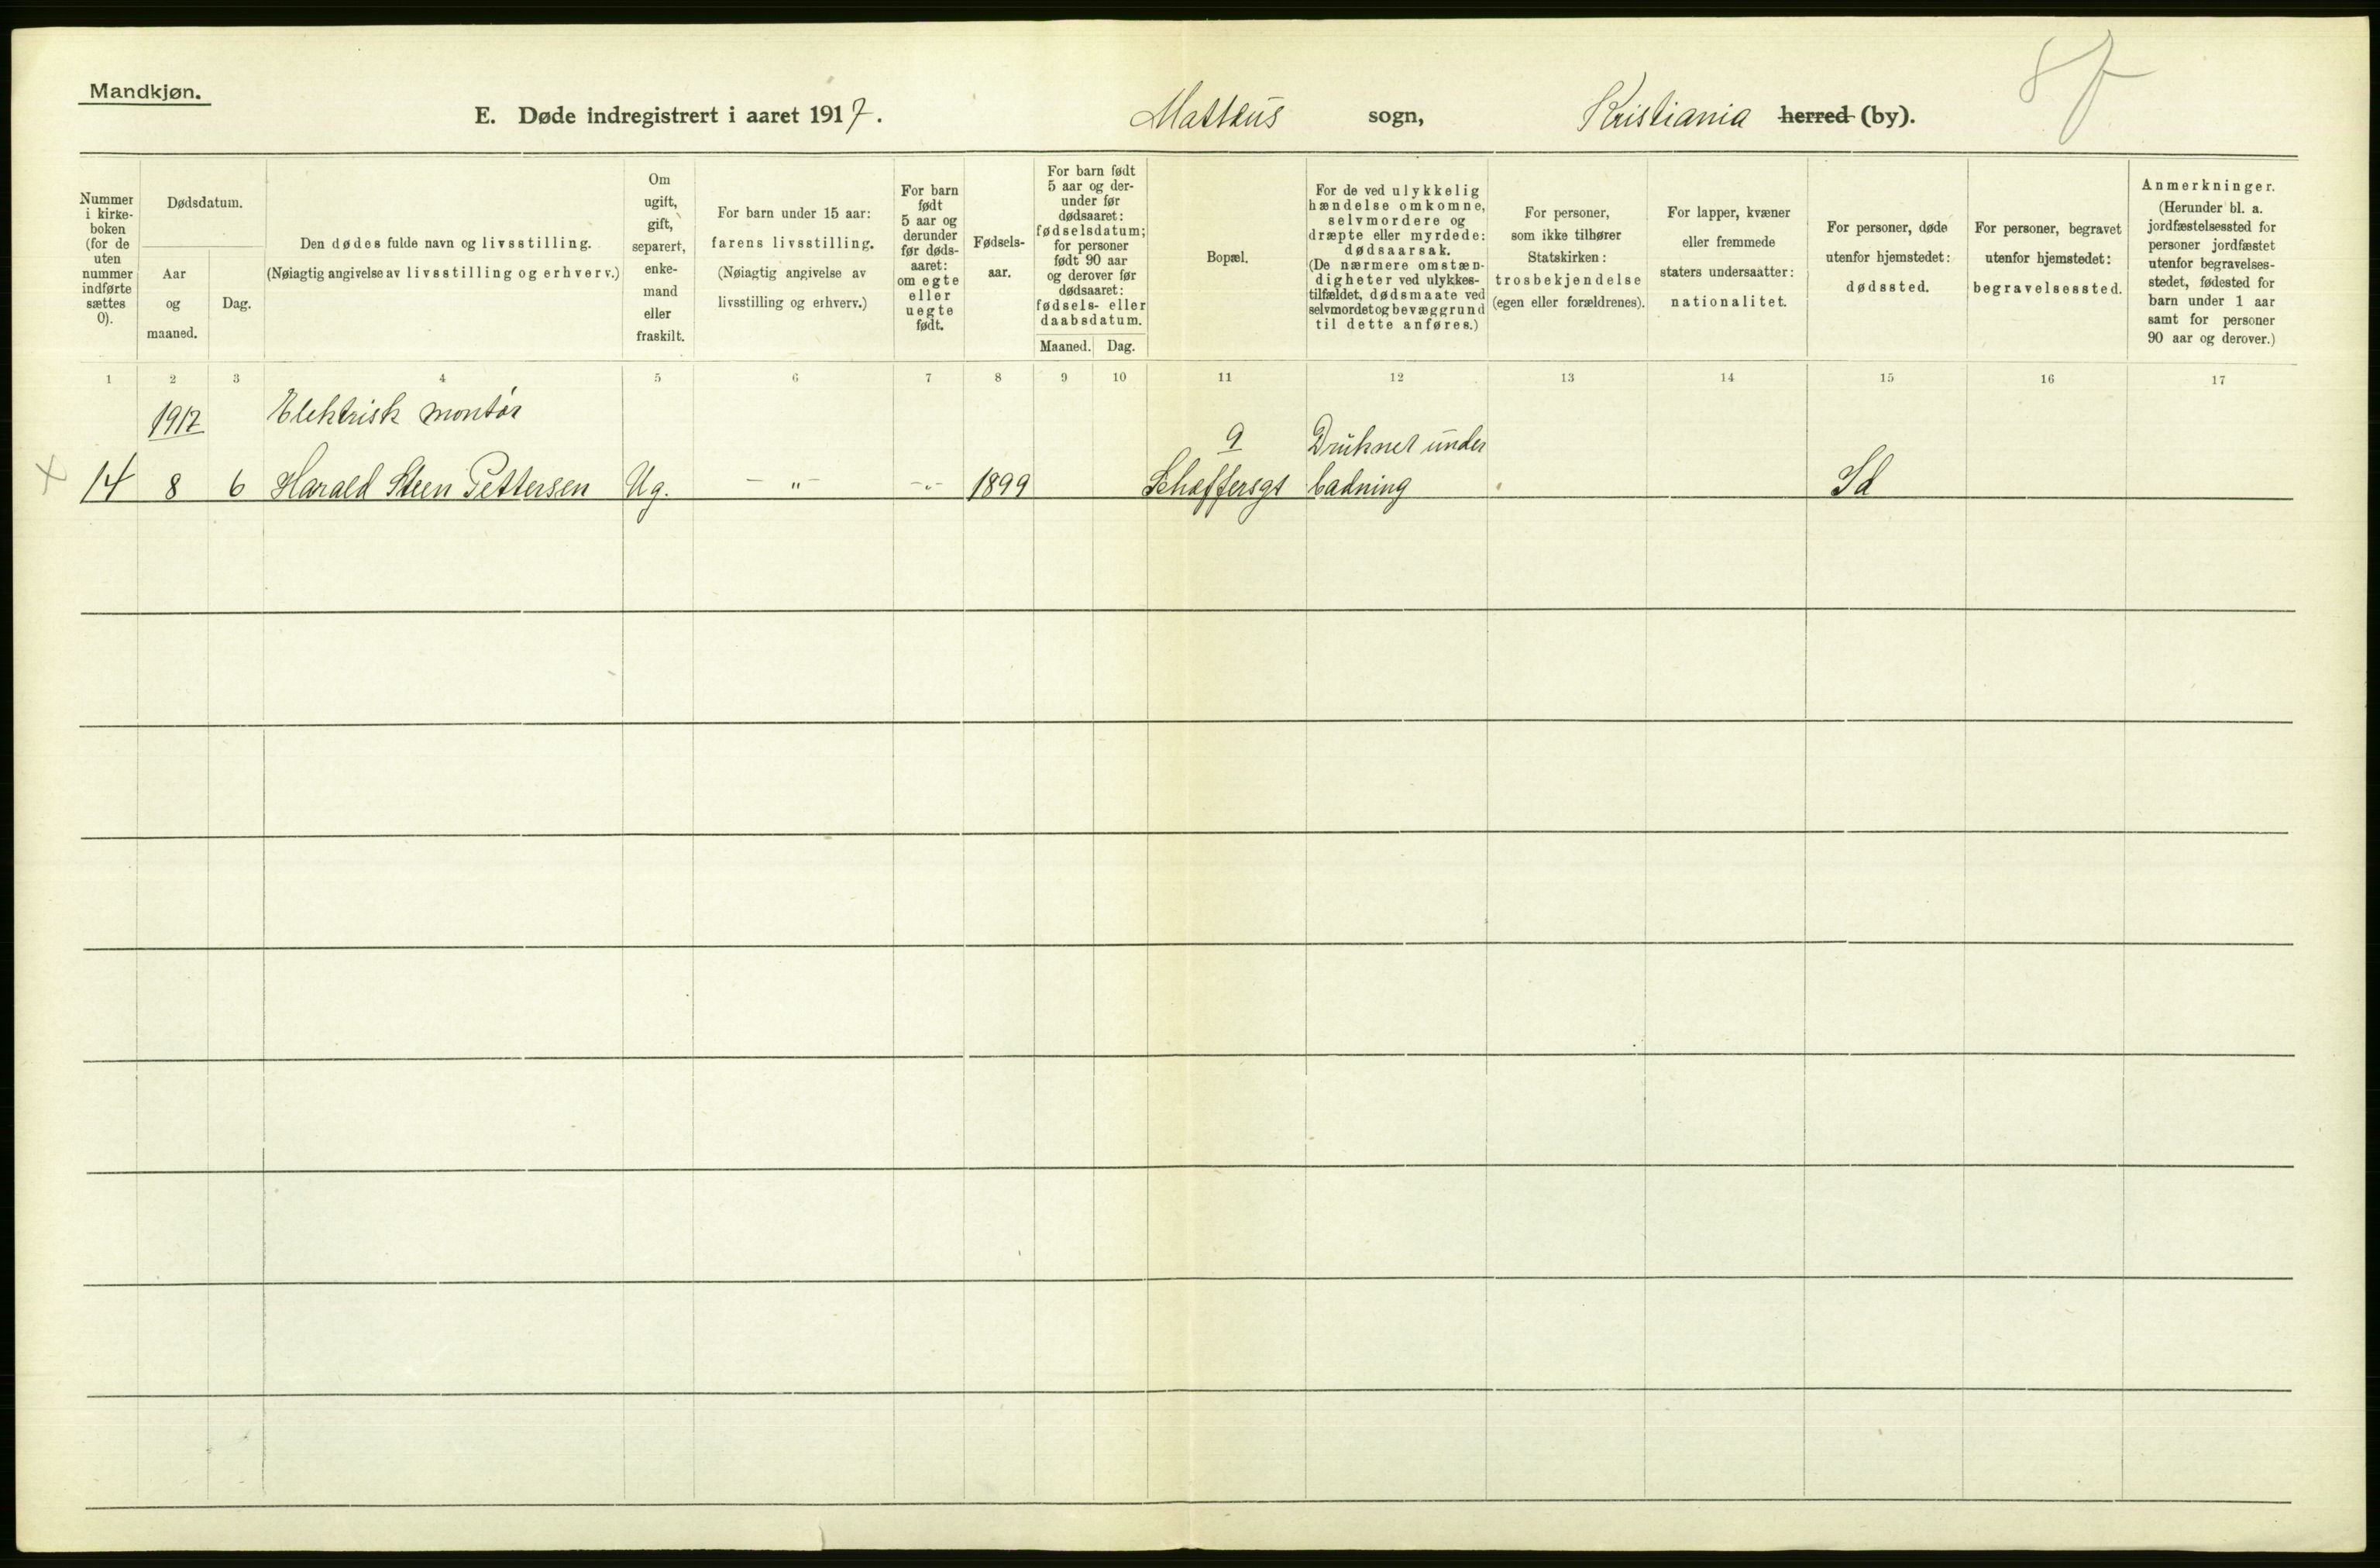 Mandkjøn.
E. Døde indregistrert i aaret 1917. Matteus sogn, Kristiania herred (by).
Nummer i kirke- boken (for de uten nummer indførte sættes 0).
Dødsdatum.
Aar og maaned.
Dag.
Den dødes fulde navn og livsstilling.
(Nøiagtig angivelse av livsstilling og erhverv.)
Om ugift, gift, separert, enke- mand eller fraskilt.
For barn under 15 aar:
farens livsstilling.
(Nøiagtig angivelse av
livsstilling og erhverv.)
For barn født 5 aar og derunder før døds- aaret: om egte eller uegte født.
Fødsels- aar.
For barn født 5 aar og der- under før dødsaaret: fødselsdatum; for personer født 90 aar og derover før dødsaaret: fødsels- eller daabsdatum.
Maaned. Dag.
Bopæl.
For de ved ulykkelig hændelse omkomne, selvmordere og dræpte eller myrdede: dødsaarsak. (De nærmere omstæn- digheter ved ulykkes- tilfældet, dødsmaate ved selvmordet og bevæggrund til dette anføres.)
For personer, som ikke tilhører Statskirken: trosbekjendelse (egen eller forældrenes).
For lapper, kvæner eller fremmede staters undersaatter: nationalitet.
For personer, døde utenfor hjemstedet: dødssted.
For personer, begravet utenfor hjemstedet: begravelsessted.
Anmerkninger.
(Herunder bl. a. jordfæstelsessted for personer jordfæstet utenfor begravelses- stedet, fødested for barn under 1 aar samt for personer 90 aar og derover.)
1 2 3 4 5 6 7 8 9 10 11 12 13 14 15 16 17
1917 Elektrisk montør
9 Druknet under
14 8 6 Harald Steen Pettersen Ug. — " — — " — 1899 Schæffersgt badning Sd